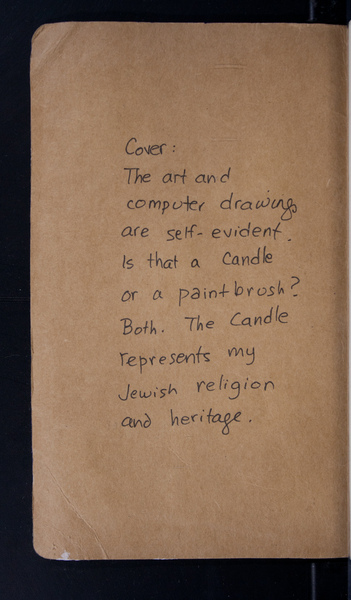 Cover:
The art and
computer drawings
are self-evident.
Is that a Candle
or a paintbrush?
Both. The Candle
represents my
Jewish religion
and heritage.